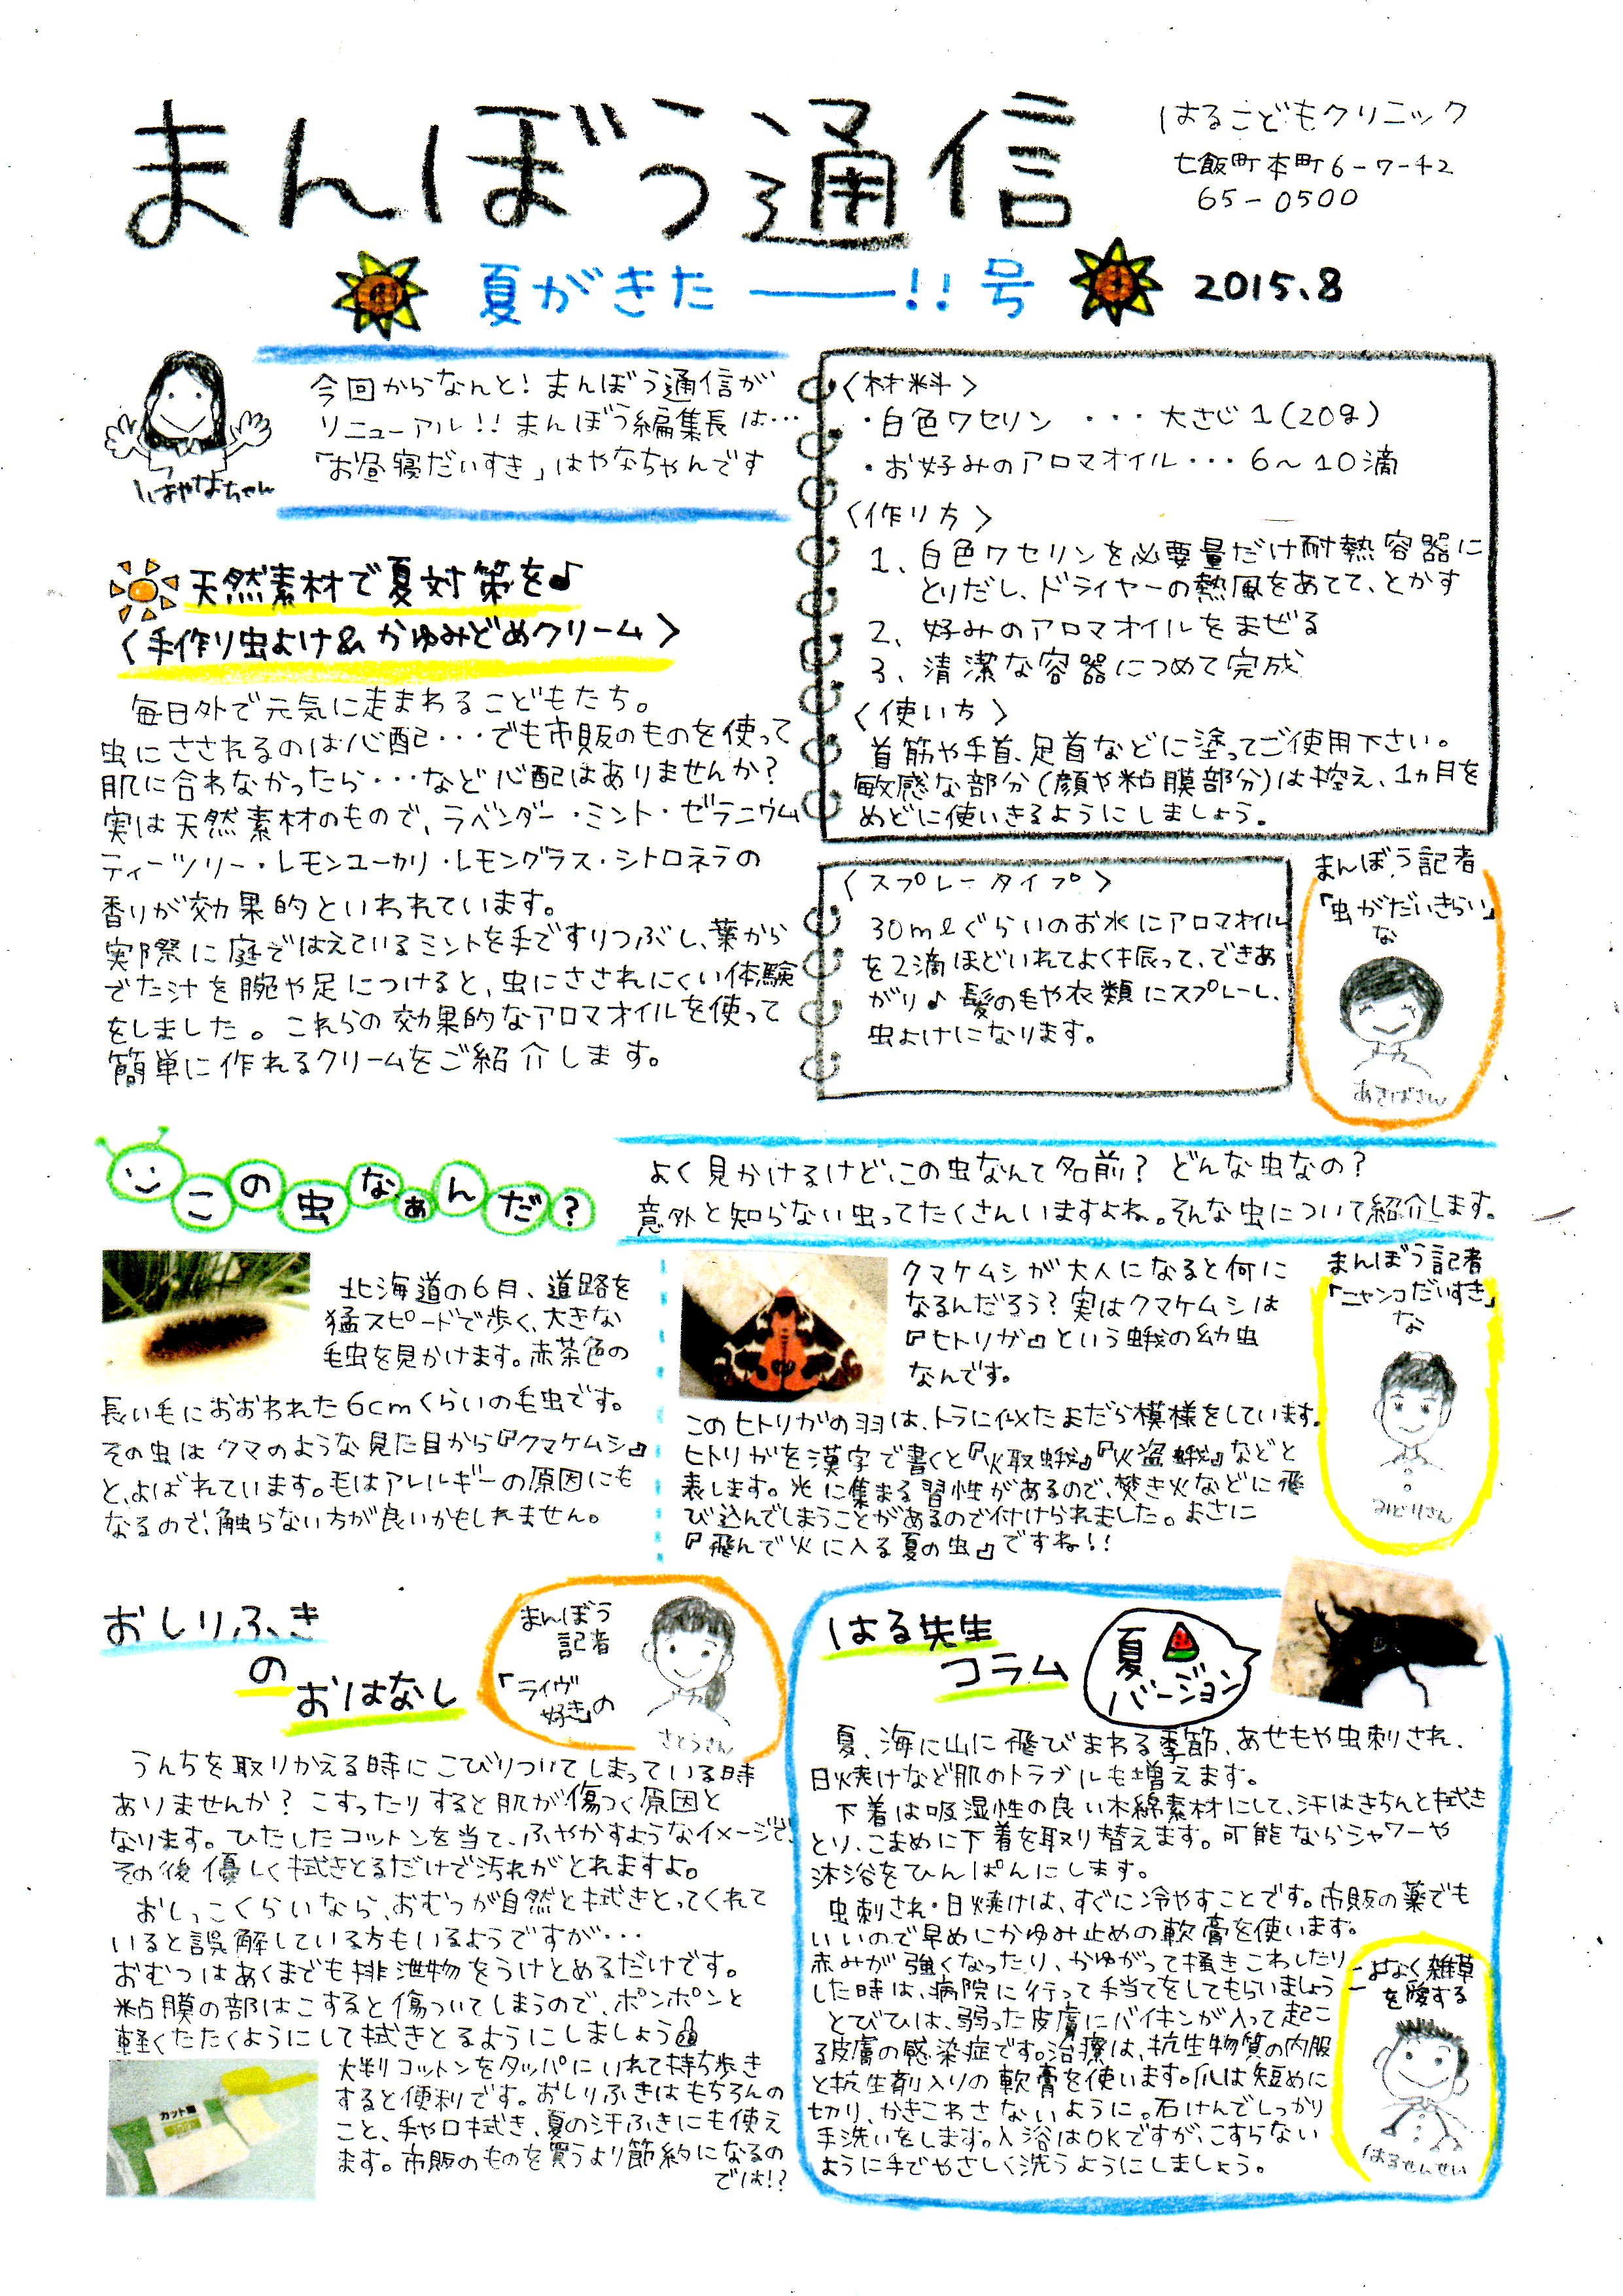 まんぼう通信
はるこどもクリニック
七飯町本町6-7-42
65-0500
夏がきた――!!号
2015.8
はやなちゃん
今回からなんと!まんぼう通信が
リニューアル!!まんぼう編集長は…
「お昼寝だいすき」はやなちゃんです
天然素材で夏対策を♪
〈手作り虫よけ&かゆみどめクリーム〉
毎日外で元気に走まわるこどもたち。
虫にさされるのは心配・・・でも市販のものを使って
肌に合わなかったら・・・など心配はありませんか?
実は天然素材のもので、ラベンダー・ミント・ゼラニウム
ティーツリー・レモンユーカリ・レモングラス・シトロネラの
香りが効果的といわれています。
実際に庭ではえているミントを手ですりつぶし、葉から
でた汁を腕や足につけると、虫にさされにくい体験
をしました。これらの効果的なアロマオイルを使って
簡単に作れるクリームをご紹介します。
〈材料〉
・白色ワセリン ・・・大さじ1(20g)
・お好みのアロマオイル・・・6〜10滴
〈作り方〉
1、白色ワセリンを必要量だけ耐熱容器に
とりだし、ドライヤーの熱風をあてて、とかす
2、好みのアロマオイルをまぜる
3、清潔な容器につめて完成
〈使い方〉
首筋や手首、足首などに塗ってご使用下さい。
敏感な部分(顔や粘膜部分)は控え、1ヵ月を
めどに使いきるようにしましょう。
〈スプレータイプ〉
30mlぐらいのお水にアロマオイル
を2滴ほどいれてよく振って、できあ
がり♪髪の毛や衣類にスプレーし、
虫よけになります。
まんぼう記者
「虫がだいきらい」
な
あさばさん
この虫なぁんだ?
よく見かけるけど、この虫なんて名前?どんな虫なの?
意外と知らない虫ってたくさんいますよね。そんな虫について紹介します。
北海道の6月、道路を
猛スピードで歩く、大きな
毛虫を見かけます。赤茶色の
長い毛におおわれた6cmくらいの毛虫です。
その虫はクマのような見た目から『クマケムシ』
と、よばれています。毛はアレルギーの原因にも
なるので、触らない方が良いかもしれません。
クマケムシが大人になると何に
なるんだろう?実はクマケムシは
『ヒトリガ』という蛾の幼虫
なんです。
このヒトリガの羽は、トラに似たまだら模様をしています。
ヒトリガを漢字で書くと『火取蛾』『火盗蛾』などと
表します。光に集まる習性があるので、焚き火などに飛
び込んでしまうことがあるので付けられました。まさに
『飛んで火に入る夏の虫』ですね!!
まんぼう記者
「ニャンコだいすき」
な
みどりさん
おしりふき
の
おはなし
まんぼう
記者
「ライヴ
好き」の
さとうさん
うんちを取りかえる時にこびりついてしまっている時
ありませんか?こすったりすると肌が傷つく原因と
なります。ひたしたコットンを当て、ふやかすようなイメージで、
その後優しく拭きとるだけで汚れがとれますよ。
おしっこくらいなら、おむつが自然と拭きとってくれて
いると誤解している方もいるようですが・・・
おむつはあくまでも排泄物をうけとめるだけです。
粘膜の部はこすると傷ついてしまうので、ポンポンと
軽くたたくようにして拭きとるようにしましょう
カット綿
大判コットンをタッパにいれて持ち歩き
すると便利です。おしりふきはもちろんの
こと、手や口拭き、夏の汗ふきにも使え
ます。市販のものを買うより節約になるの
では!?
はる先生
コラム
夏
バージョン
夏、海に山に飛びまわる季節、あせもや虫刺され、
日焼けなど肌のトラブルも増えます。
下着は吸湿性の良い木綿素材にして、汗はきちんと拭き
とり、こまめに下着を取り替えます。可能ならシャワーや
沐浴をひんぱんにします。
虫刺され・日焼けは、すぐに冷やすことです。市販の薬でも
いいので早めにかゆみ止めの軟膏を使います。
赤みが強くなったり、かゆがって掻きこわしたり
した時は、病院に行って手当てをしてもらいましょう
とびひは、弱った皮膚にバイキンが入って起こ
る皮膚の感染症です。治療は、抗生物質の内服
と抗生剤入りの軟膏を使います。爪は短めに
切り、かきこわさないように。石けんでしっかり
手洗いをします。入浴はOKですが、こすらない
ように手でやさしく洗うようにしましょう。
こよなく雑草
を愛する
はるせんせい